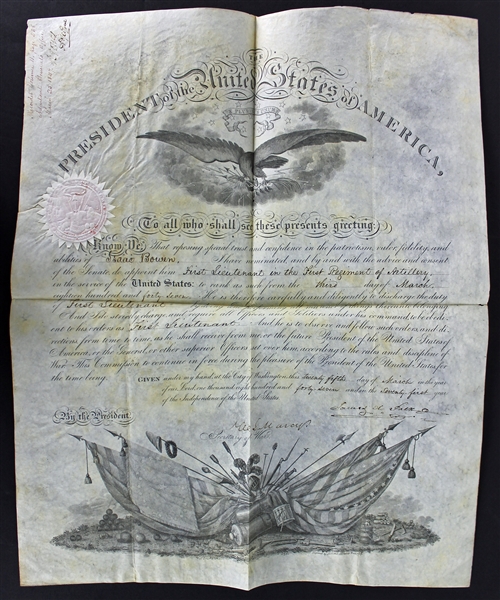 THE
PRESIDENT of the United States of AMERICA,
To all who shall see these presents greeting:
Know Ye: That reposing special trust and confidence in the patriotism, valor, fidelity, and
abilities of Isaac Bowen I have nominated and by and with the advice and consent
of the Senate do appoint him First Lieutenant in the First Regiment of Artillery
in the service of the United States: to rank as such from the third day of March
eighteen hundred and forty seven He is therefore carefully and diligently to discharge the duty
of First Lieutenant by doing and performing all manner of things thereunto belonging.
And I do strictly charge, and require all Officers and Soldiers under his command, to be obedi-
ent to his orders as First Lieutenant And he is to observe and follow such orders, and di-
rections from time to time, as he shall receive from me, or the future President of the United States of
America, or the General, or other superior Officers set over him, according to the rules and discipline of
War. This Commission to continue in force during the pleasure of the President of the United States for
the time being.
GIVEN under my hand, at the City of Washington, this Twenty fifth day of March in the year
of our Lord one thousand eight hundred and forty seven and in the Seventy first year
of the Independence of the United States.
By the President
James K. Polk
W. L. Marcy
Secretary of War.